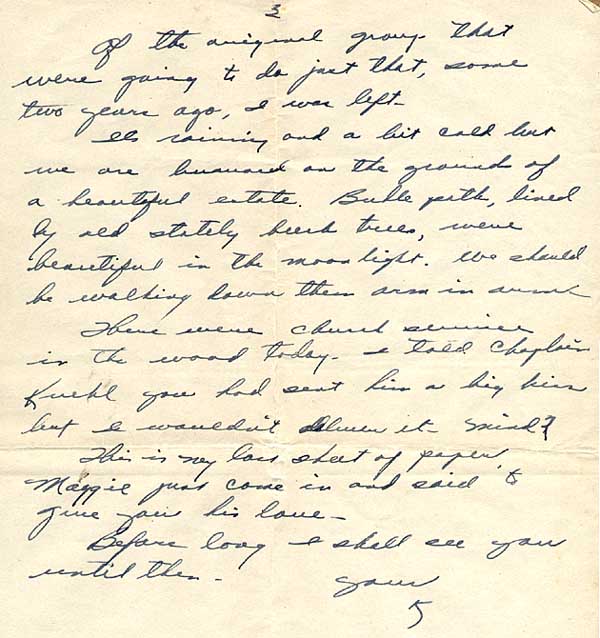 3
Of the original group that
were going to do just that, some
two years ago, I was left-
Its raining and a bit cold but
we are on the grounds of
a beautiful estate. path, lined
by old stately beech trees, were
beautiful in the moon light. We should
be walking down them arm in arm-
There were church services
in the wood today- I told Chaplain
Kuehl you had sent him a big kiss
but I wouldn't deliver it- mind?
This is my last sheet of paper.
Maggie just come in and said to
give you his love-
Before long I shall see you
until then- your
K